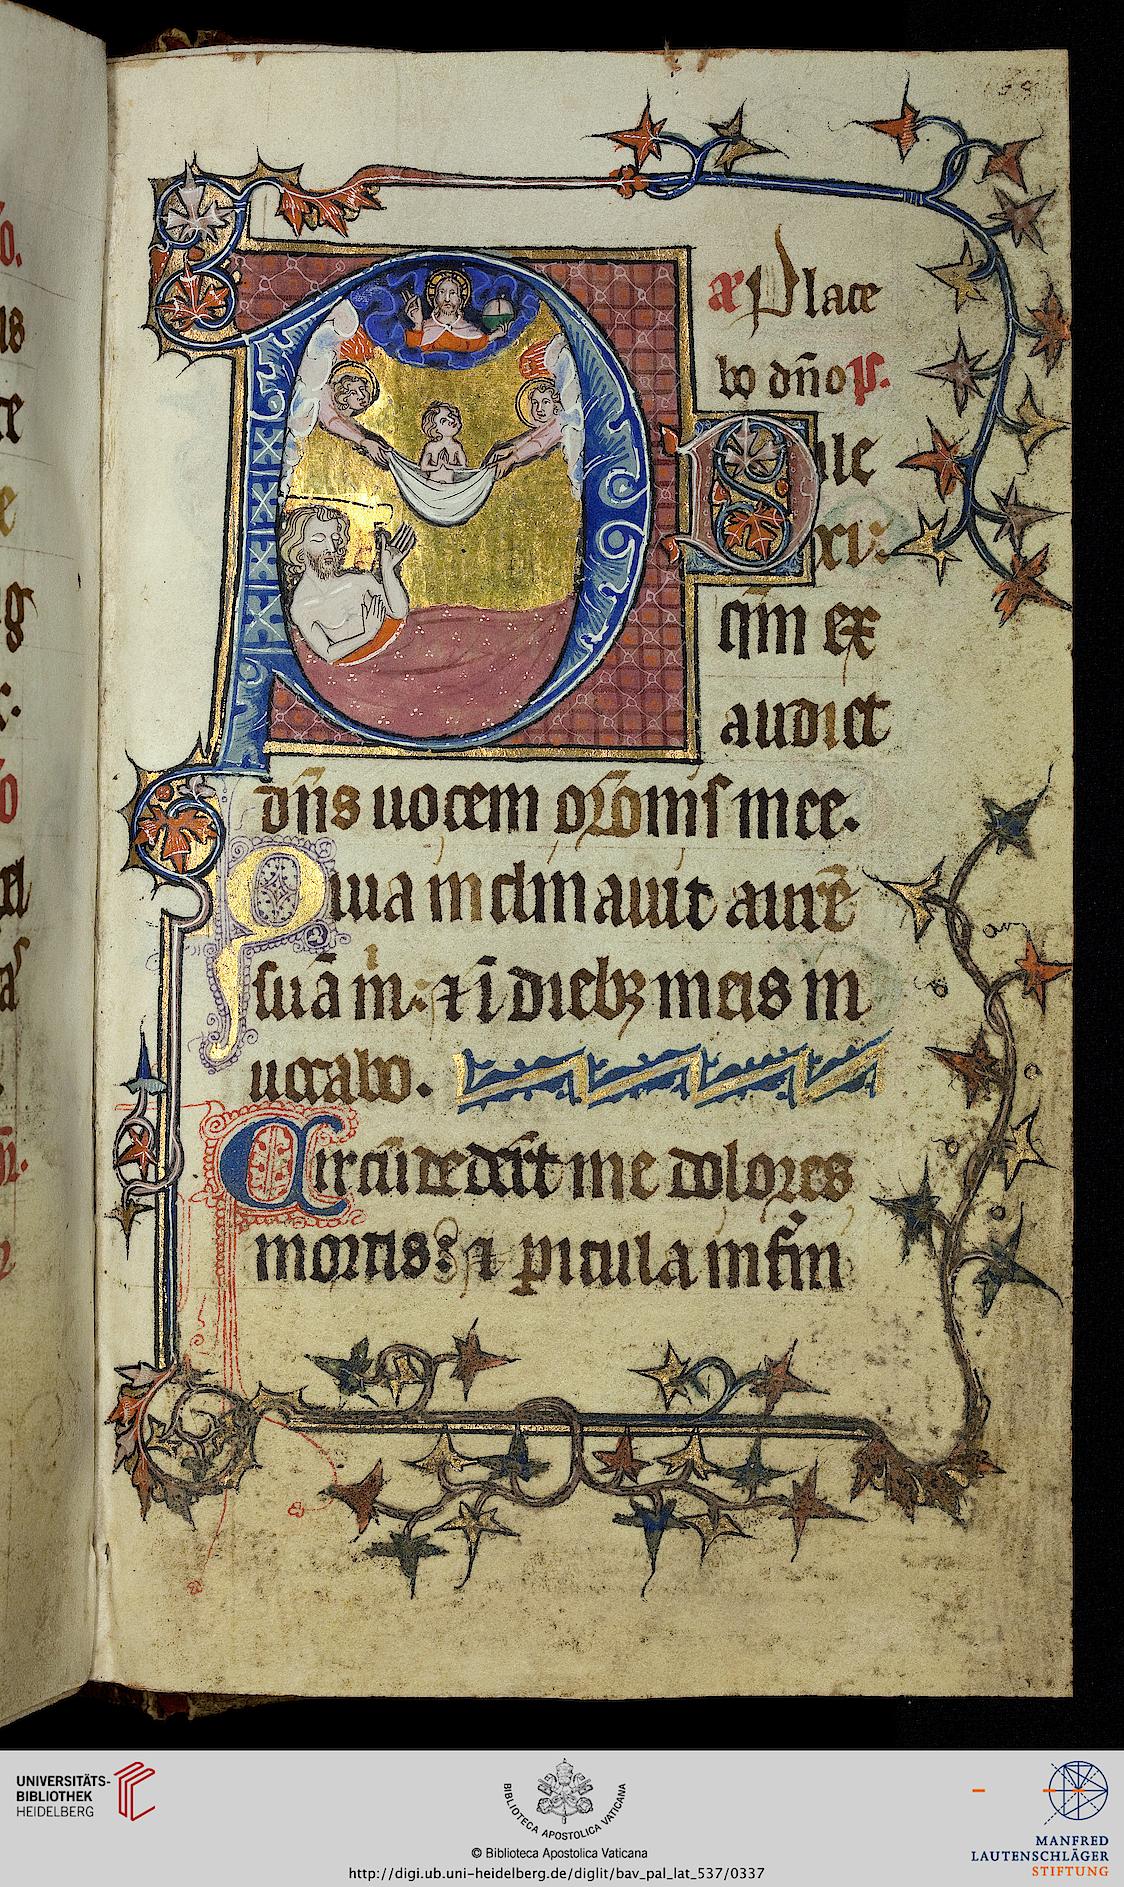 a͞ Place
bo dn̄o p̄.
Dile
xi:
qm̄ ex
audiet
dn̄s uocem or̄onis mee.
Quia inclinauit aurē
suā m̄: ⁊ ī diebꝫ meis in
uocabo.
Circūdedert̄ me dolores
mortis: ⁊ ꝑicula infnͥ
UNIVERSITÄTS-
BIBLIOTHEK
HEIDELBERG
BIBLIOTECA APOSTOLICA VATICANA
© Biblioteca Apostolica Vaticana
http://digi.ub.uni-heidelberg.de/diglit/bav_pal_lat_537/0337
MANFRED
LAUTENSCHLÄGER
STIFTUNG